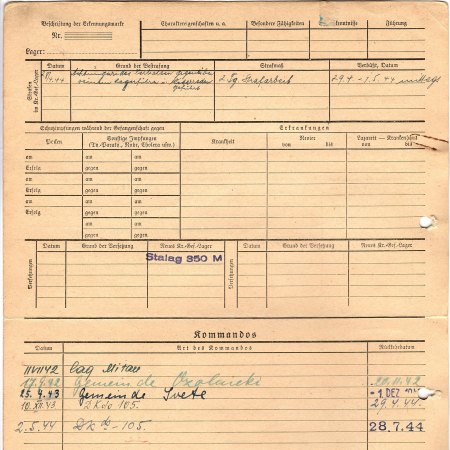 Beschriftung der Erkennungsmarke Charaktereigenschaften u. a. Besondere Fähigkeiten kenntnisse Führung
Nr.
Lager:
Strafen in Kr.-Gef.-Lager Datum Grund der Bestrafung Strafmaß Verbüßt, Datum
44 2 Tg. Strafarbeit 29.4 - 1.5.44
Schutzimpfungen während der Gefangenschaft gegen Erkrankungen
Pocken Sonstige Impfungen Krankheit Revier Lazarett - Krankenhaus
(Ty.-Paraty., Ruhr, Cholera usw.) von bis von bis
am am am
Erfolg gegen gegen
am am am
Erfolg gegen gegen
am am am
Erfolg gegen gegen
am am
gegen gegen
Versetzungen Datum Grund der Versetzung Neues Kr.-Gef.-Lager Versetzungen Datum Grund der Versetzung Neues Kr.-Gef.-Lager
Stalag 350 M
Kommandos
Datum Art des Kommandos Rückkehrdatum
Lag Mitau
17.9.42 Gemeinde 20.11.42
25.4.43 Gemeinde Svete -1. DEZ.
10.XII.43 DKdo-105. 29.4.44.
2.5.44 DKdo-105. 28.7.44